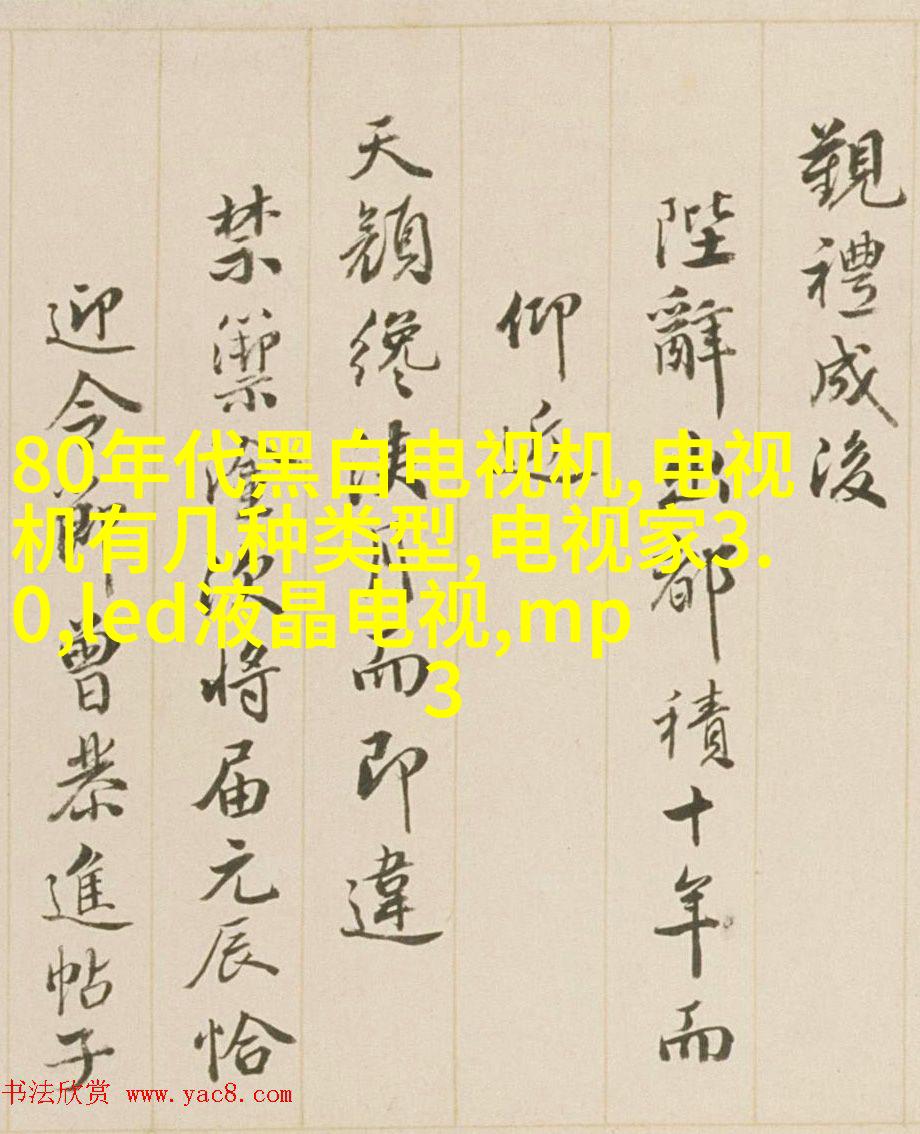 覲禮成後
陛辭出都積十年而
仰近
天顏纔浹月而即違
禁籞隆將届元辰恰
迎令節曾恭進帖子
80年代黑白电视机,电视
机有几种类型,电视家3.
0,led液晶电视,mp
3
书法欣赏 www.yac8.com